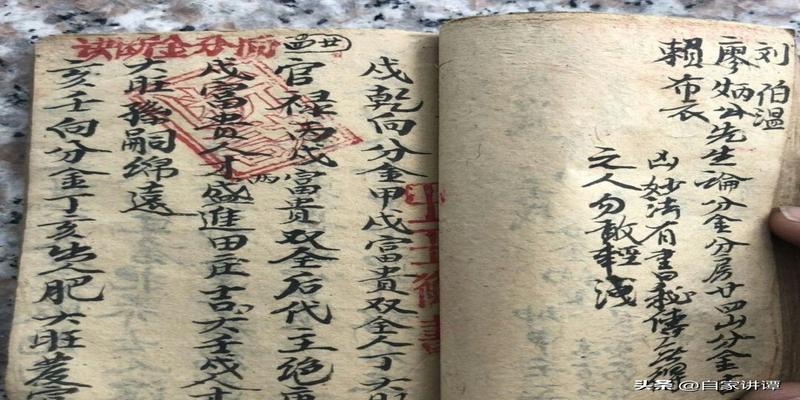 刘伯温
廖炳公先生論分金分房廿四山分金吉
賴布衣
凶妙法有書秘傳
之人勿敢輕淺
廿四向分金断诀
戌乾向分金甲戌富貴双全人丁大旺
官禄丙戌富貴双全后代主绝
戌富貴人才盛進田庄吉大壬戌
大旺孫嗣綿遠
亥壬向分金丁亥生人肥大旺發官
头条 @自家讲谭